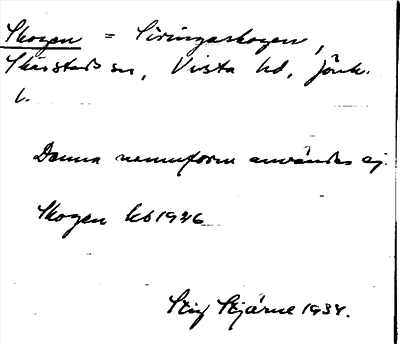 Skogen = Siringaskogen,
Skärstads sn, Vista hd, Jönk.
l.
Denna namnform användes ej.
Skogen kb 1926
Stig Stjärne 1934.